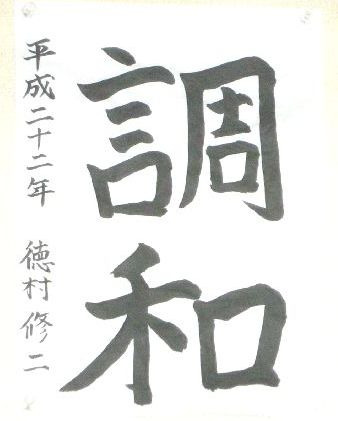 調和
平成二十二年 徳村修二